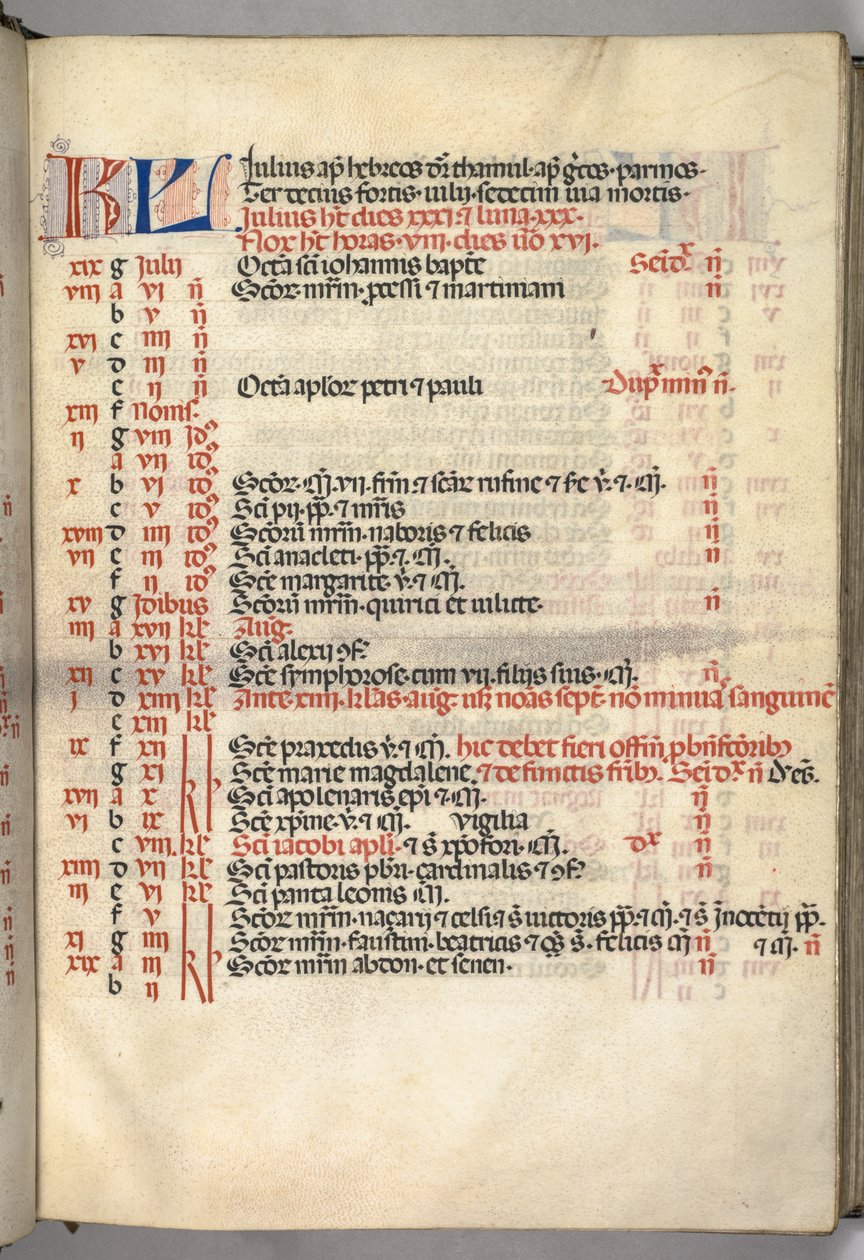 KL Iulius ap̄ hebreos dr̄ thamul·ap̄ grecos·parmos·
Ter decius fortis·iulii·sedecim uia mortis·
Julius hт̄ dies xxxi ⁊ luna·xxx·
Nox hт̄ horas·viii·dies ūo xvi·
xix g Julii Octā scī iohannis baptē Seīdx n̄
viii a vi n̄ Scōr·mr̄m·ꝓcessi ⁊ martiniani n̄
b v n̄
xvi c iiii n̄
v d iii n̄
e ii n̄ Octā aplōr petri ⁊ pauli Dupx min̄ n̄·
xiii f Nonis·
ii g viii Jdꝰ
a vii idꝰ
x b vi idꝰ Scōr·m̄·vii·fr̄m ⁊ scār rufine ⁊ sc̄e v̄·⁊·m̄· n̄
c v idꝰ Scī pii·pp̄·⁊ mr̄is n̄
xviii d iiii idꝰ Scōrū mr̄m·naboris ⁊ felicis n̄
vii e iii idꝰ Scī anacleti·pp̄·⁊·m̄· n̄
f ii idꝰ Scē margarite·v̄·⁊ m̄·
xv g Jdibus Scōrū mr̄m·quirici et iulitte· n̄
iiii a xvii kl̄ Auḡ·
b xvi kl̄ Scī alexii ꝯf·
xii c xv kl̄ Scē symphorose·cum vii·filijs suis·m̄· n̄
i d xiiii kl̄ Ante·xiiii·klas·auḡ·usq noās sept̄·nō minuāt sanguinē
e xiii kl̄
ix f xii kl̄ Scē praxedis v̄·⁊ m̄· hic debet fieri offm̄ pbn̄fc̄oribꝰ
g xi Scē marie magdalene·⁊ defunctis fr̄ibꝰ· Seīdx n̄ Oēs·
xvii a x Scī apolenaris ep̄i ⁊·m̄· n̄
vi b ix Scē xp̄ine·v̄·⁊ m̄· vigilia n̄
c viii·kl̄ Scī iacobi apl̄i·⁊ s̄ xp̄ofori·m̄· dx n̄
xiiii d vii kl̄ Scī pastoris pbr̄i·cardinalis ⁊ ꝯf· n̄
iii e vi kl̄ Scī pantaleonis m̄·
f v kl̄ Scōr mr̄m·naçarii ⁊ celsi ⁊ s̄ uictoris pp̄·⁊ m̄·⁊ s̄ Jnocētij pp̄·
xi g iiii Scōr mr̄m·faustini·beatricis ⁊ s̄ felicis m̄ n̄ ⁊ m̄· n̄
xix a iii Scōr mr̄m abdon·et senen· n̄
b ii